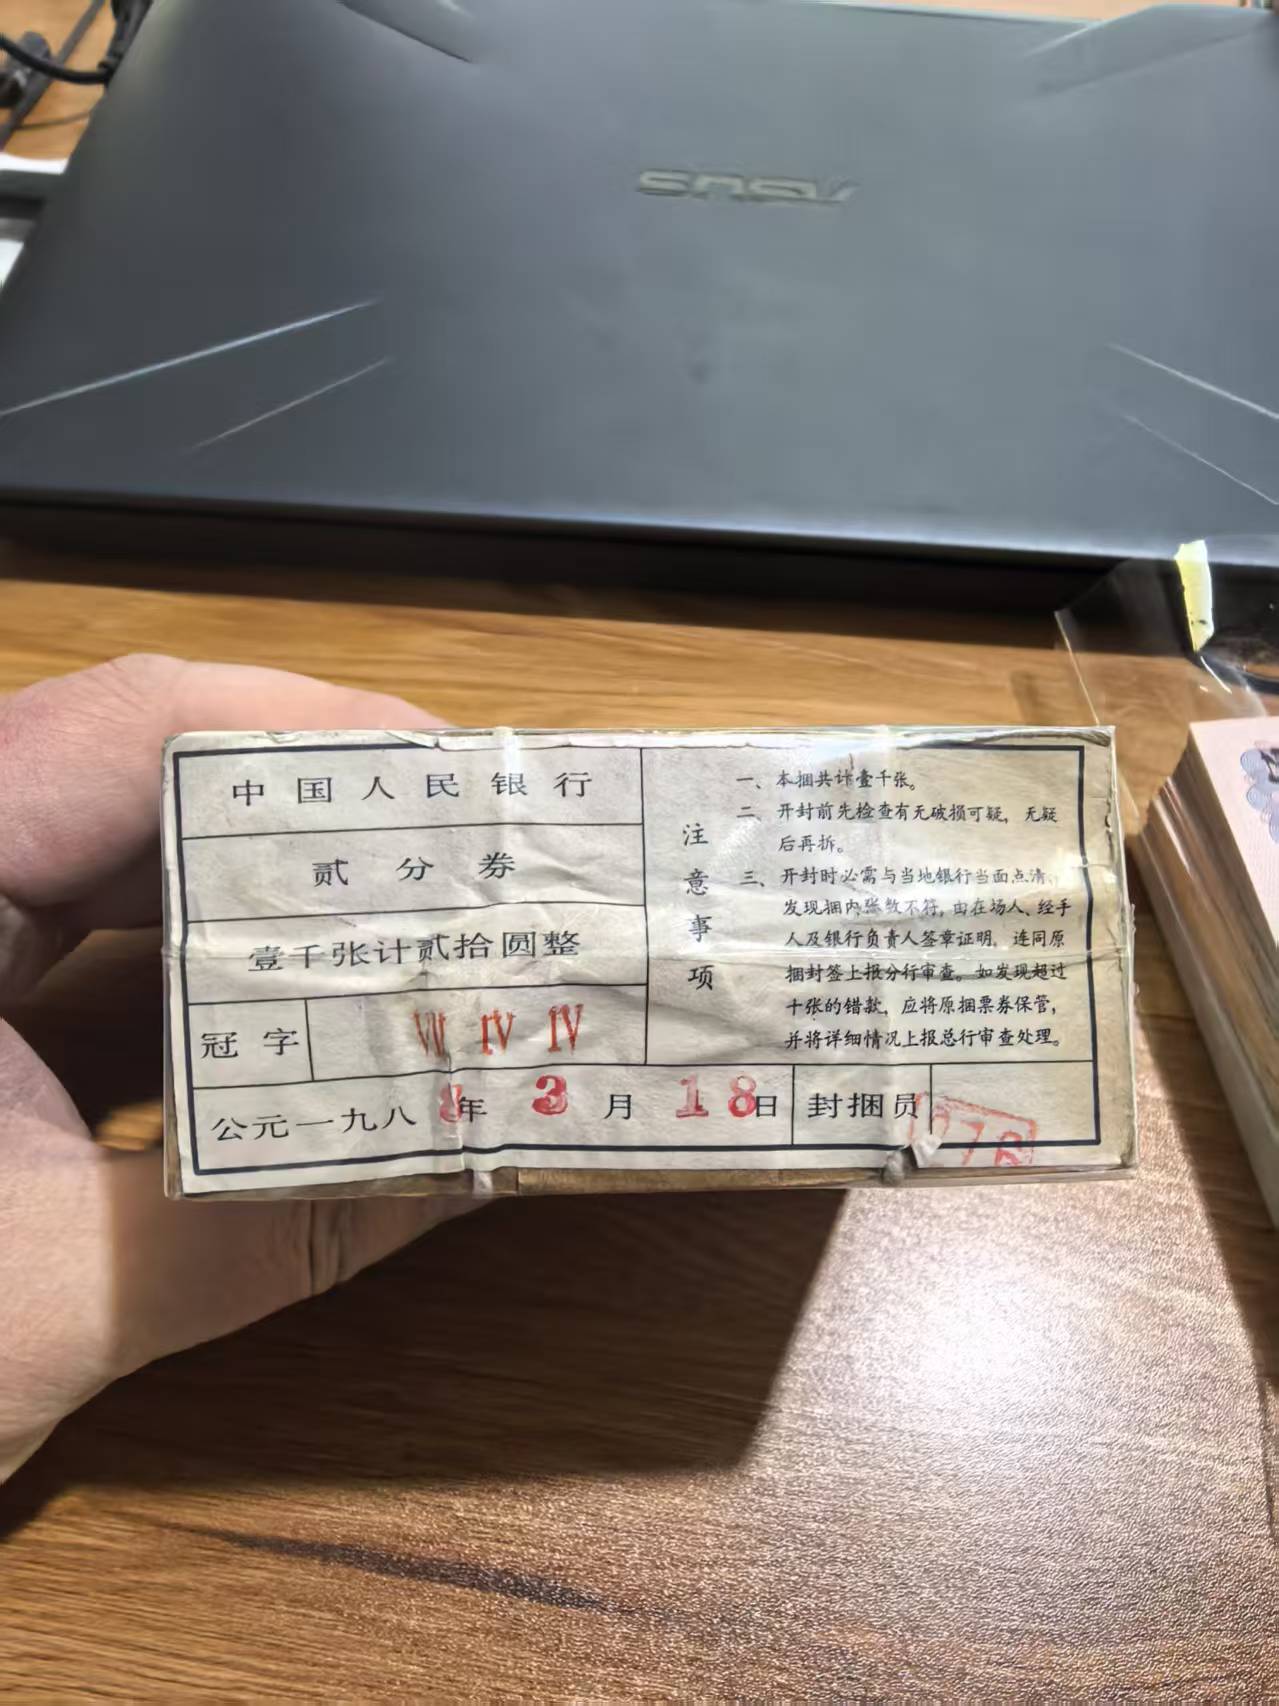 ASUS
中国人民银行
贰分券
壹千张计贰拾圆整
冠字 Ⅶ Ⅳ Ⅳ
公元一九八8年3月18日
封捆员
注意事项
一、本捆共计壹千张。
二、开封前先检查有无破损可疑，无疑
后再拆。
三、开封时必需与当地银行当面点清，
发现捆内张数不符，由在场人、经手
人及银行负责人签章证明，连同原
捆封签上报分行审查。如发现超过
十张的错款，应将原捆票券保管，
并将详细情况上报总行审查处理。